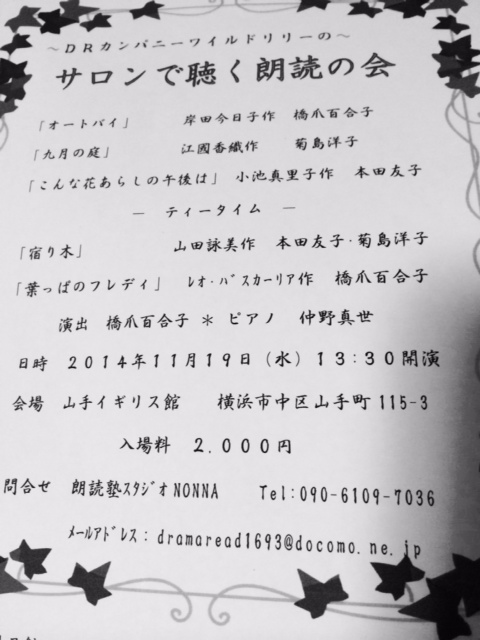 ～ＤＲカンパニーワイルドリリーの～
サロンで聴く朗読の会
「オートバイ」 岸田今日子作 橋爪百合子
「九月の庭」 江國香織作 菊島洋子
「こんな花あらしの午後は」 小池真里子作 本田友子
－ ティータイム －
「宿り木」 山田詠美作 本田友子・菊島洋子
「葉っぱのフレディ」 ﾚｵ・ﾊﾞｽカーﾘｱ作 橋爪百合子
演出 橋爪百合子 ＊ ピアノ 仲野真世
日時 ２０１４年１１月１９日（水）１３：３０開演
会場 山手イギリス館 横浜市中区山手町115-3
入場料 ２.０００円
問合せ 朗読塾ｽﾀｼﾞｵNONNA Tel:090-6109-7036
ﾒｰﾙｱﾄﾞﾚｽ：dramaread1693@docomo.ne.jp